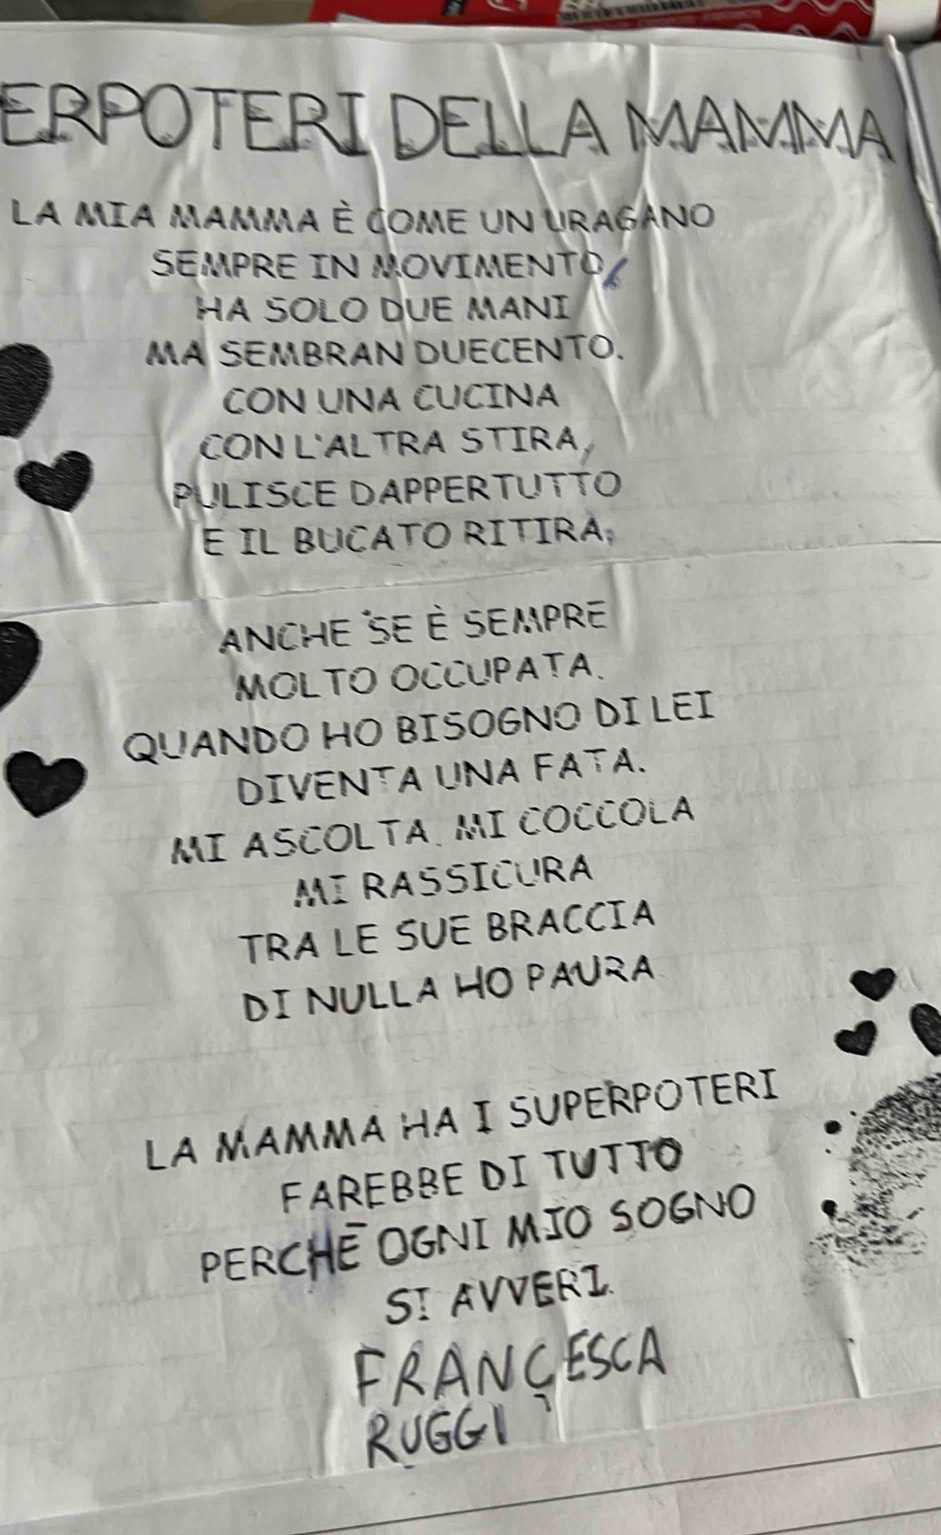 ERPOTERI DELLA MAMMA
LA MIA MAMMA È COME UN URAGANO
SEMPRE IN MOVIMENTO,
HA SOLO DUE MANI
MA SEMBRAN DUECENTO.
CON UNA CUCINA
CON L'ALTRA STIRA,
PULISCE DAPPERTUTTO
E IL BUCATO RITIRA;
ANCHE SE È SEMPRE
MOLTO OCCUPATA.
QUANDO HO BISOGNO DI LEI
DIVENTA UNA FATA.
MI ASCOLTA. MI COCCOLA
MI RASSICURA
TRA LE SUE BRACCIA
DI NULLA HO PAURA
LA MAMMA HA I SUPERPOTERI
FAREBBE DI TUTTO
PERCHÉ OGNI MIO SOGNO
SI AVVERI.
FRANCESCA
RUGGI